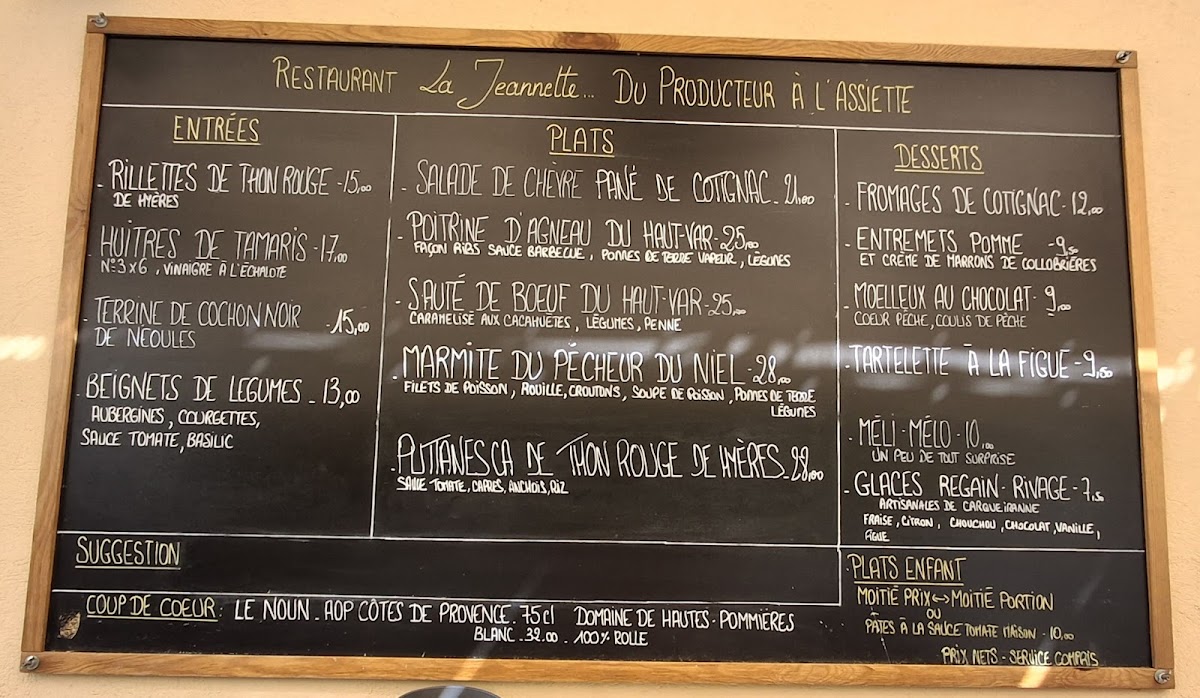 RESTAURANT La Jeannette... DU PRODUCTEUR À L'ASSIETTE
ENTRÉES
- RILLETTES DE THON ROUGE - 15,00
DE HYÈRES
- HUITRES DE TAMARIS - 17,00
N°3 x 6 , VINAIGRE À L'ÉCHALOTE
- TERRINE DE COCHON NOIR - 15,00
DE NÉOULES
- BEIGNETS DE LEGUMES - 13,00
AUBERGINES , COURGETTES,
SAUCE TOMATE, BASILIC
PLATS
- SALADE DE CHÈVRE PANÉ DE COTIGNAC - 21,00
- POITRINE D'AGNEAU DU HAUT-VAR - 25,00
FAÇON RIBS SAUCE BARBECUE , POMMES DE TERRE VAPEUR , LÉGUMES
- SAUTÉ DE BOEUF DU HAUT-VAR - 25,00
CARAMELISÉ AUX CACAHUÈTES , LÉGUMES , PENNE
- MARMITE DU PÊCHEUR DU NIEL - 28,00
FILETS DE POISSON , ROUILLE, CROUTONS , SOUPE DE POISSON , POMMES DE TERRE
LÉGUMES
- PUTTANESCA DE THON ROUGE DE HYÈRES - 28,00
SAUCE TOMATE, CAPRES, ANCHOIS, RIZ
DESSERTS
- FROMAGES DE COTIGNAC - 12,00
- ENTREMETS POMME - 9,50
ET CRÈME DE MARRONS DE COLLOBRIÈRES
- MOELLEUX AU CHOCOLAT - 9,00
COEUR PÊCHE, COULIS DE PÊCHE
- TARTELETTE À LA FIGUE - 9,50
- MÉLI-MÉLO - 10,00
UN PEU DE TOUT SURPRISE
- GLACES REGAIN - RIVAGE - 7,50
ARTISANALES DE CARQUEIRANNE
FRAISE, CITRON, CHOUCHOU, CHOCOLAT, VANILLE,
FIGUE
SUGGESTION
COUP DE COEUR : LE NOUN . AOP CÔTES DE PROVENCE . 75cl DOMAINE DE HAUTES - POMMIÈRES
BLANC - 32.00 - 100% ROLLE
PLATS ENFANT
MOITIÉ PRIX ↔ MOITIÉ PORTION
OU
PÂTES À LA SAUCE TOMATE MAISON - 10,00
PRIX NETS - SERVICE COMPRIS